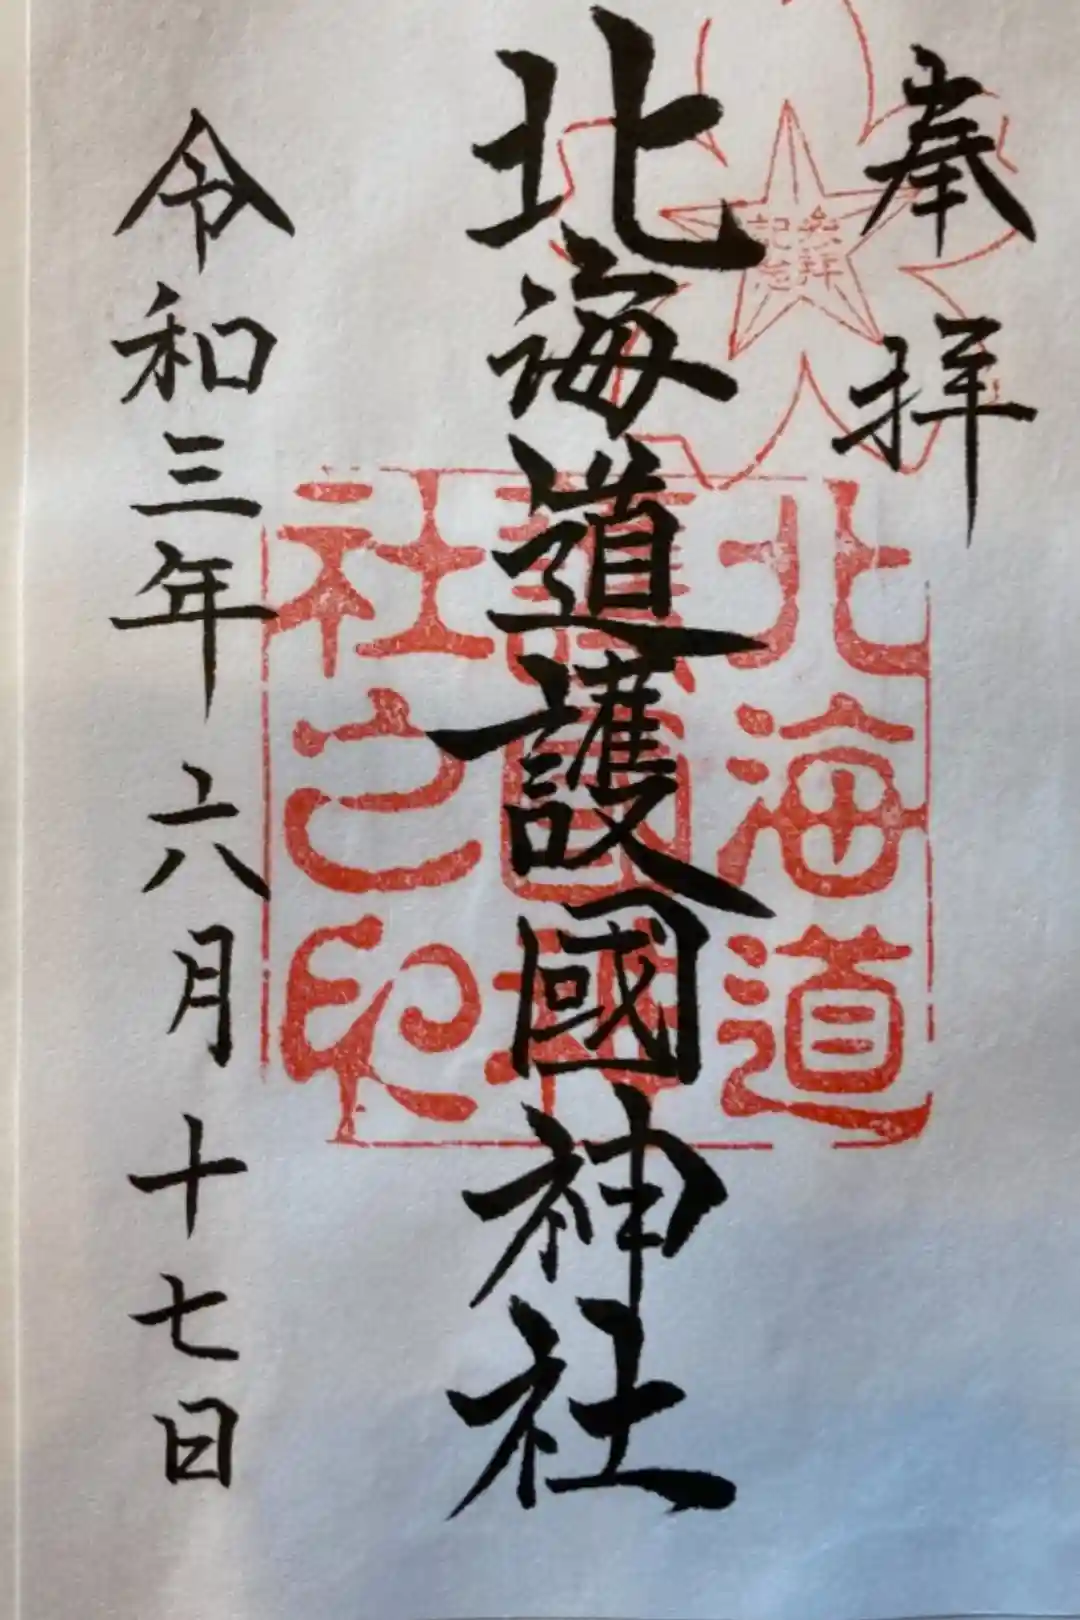 奉拝
参拝
記念
北海道護國神社
北海道
護國神
社之印
令和三年六月十七日